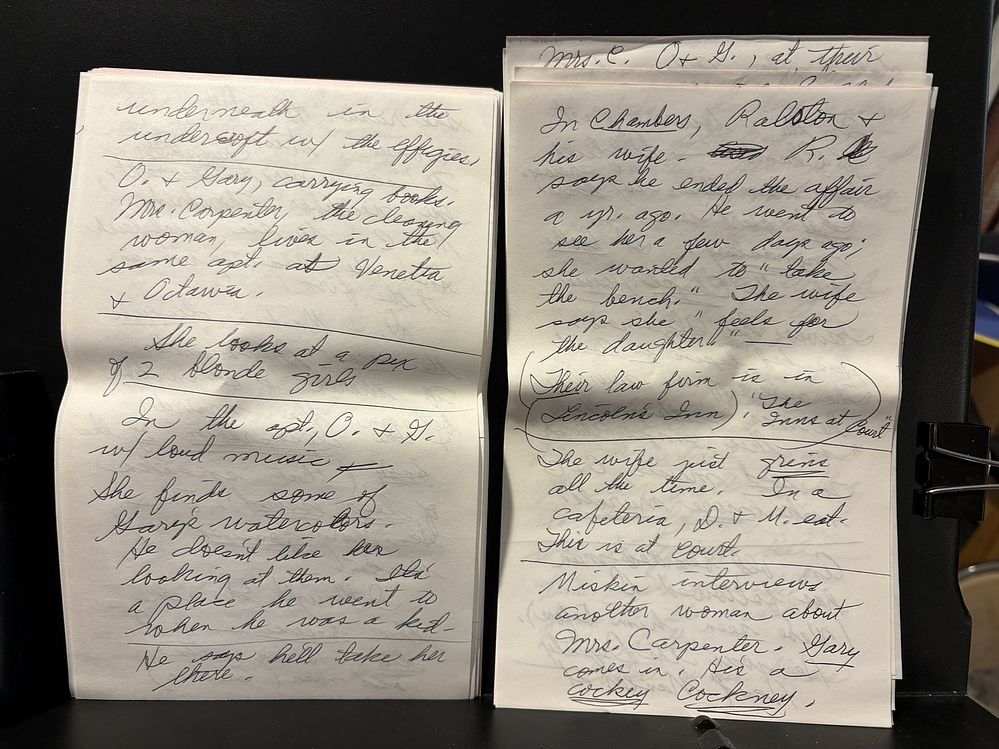 underneath in the
undercroft w/ the effigies,
O. & Gary, carrying books.
Mrs. Carpenter, the cleaning
woman, lives in the
same apt. as Venetia
& Octavia.
She looks at a pix
of 2 blonde girls
In the apt., O. & G.
w/ loud music
She finds some of
Gary's watercolors.
He doesn't like her
looking at them. It's
a place he went to
when he was a kid.
He says he'll take her
there.
Mrs. C. O + G., at their
In Chambers, Ralston &
his wife. R.
says he ended the affair
a yr. ago. He went to
see her a few days ago;
she wanted to "take
the bench." The wife
says she "feels for
the daughter." —
(Their law firm is in
(Lincoln's Inn). "The
Inns at Court")
The wife just grins
all the time. In a
cafeteria, D. & M. eat.
This is at Court.
Miskin interviews
another woman about
Mrs. Carpenter. Gary
comes in. He's a
cockey Cockney,